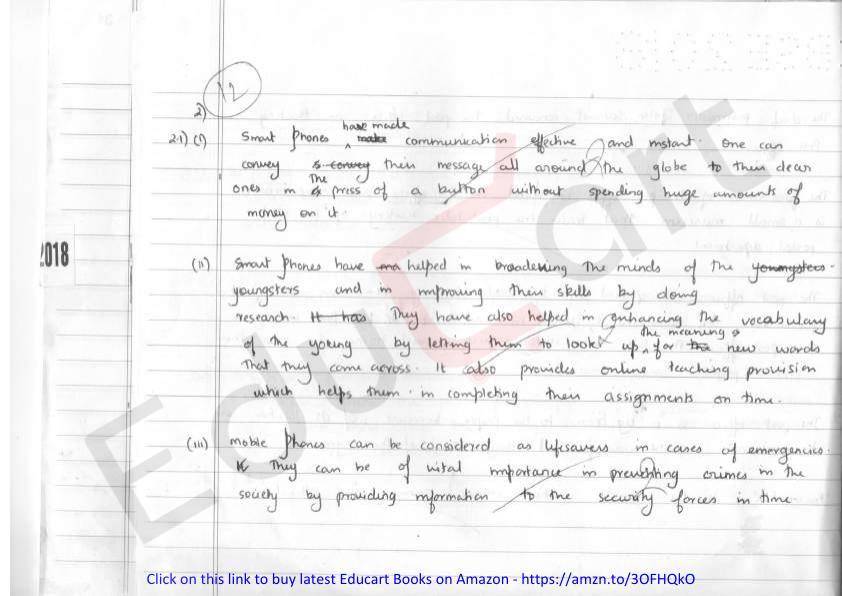 12
2)
2.1) (i) Smart phones have made make communication effective and instant. One can
convey & convey their message all around the globe to their dear
ones in The press of a button without spending huge amounts of
money on it.
2018
(ii) Smart phones have helped in broadening the minds of the youngsters
youngsters and in improving their skills by doing
research. It has They have also helped in enhancing the vocabulary
of the young by letting them to look up the meanings for the new words
that they come across. It also provides online teaching provision
which helps them in completing their assignments on time.
(iii) Moble phones can be considered as lifesavers in cases of emergencies.
They can be of vital importance in preventing crimes in the
society by providing information to the security forces in time
Educart
Click on this link to buy latest Educart Books on Amazon - https://amzn.to/3OFHQkO